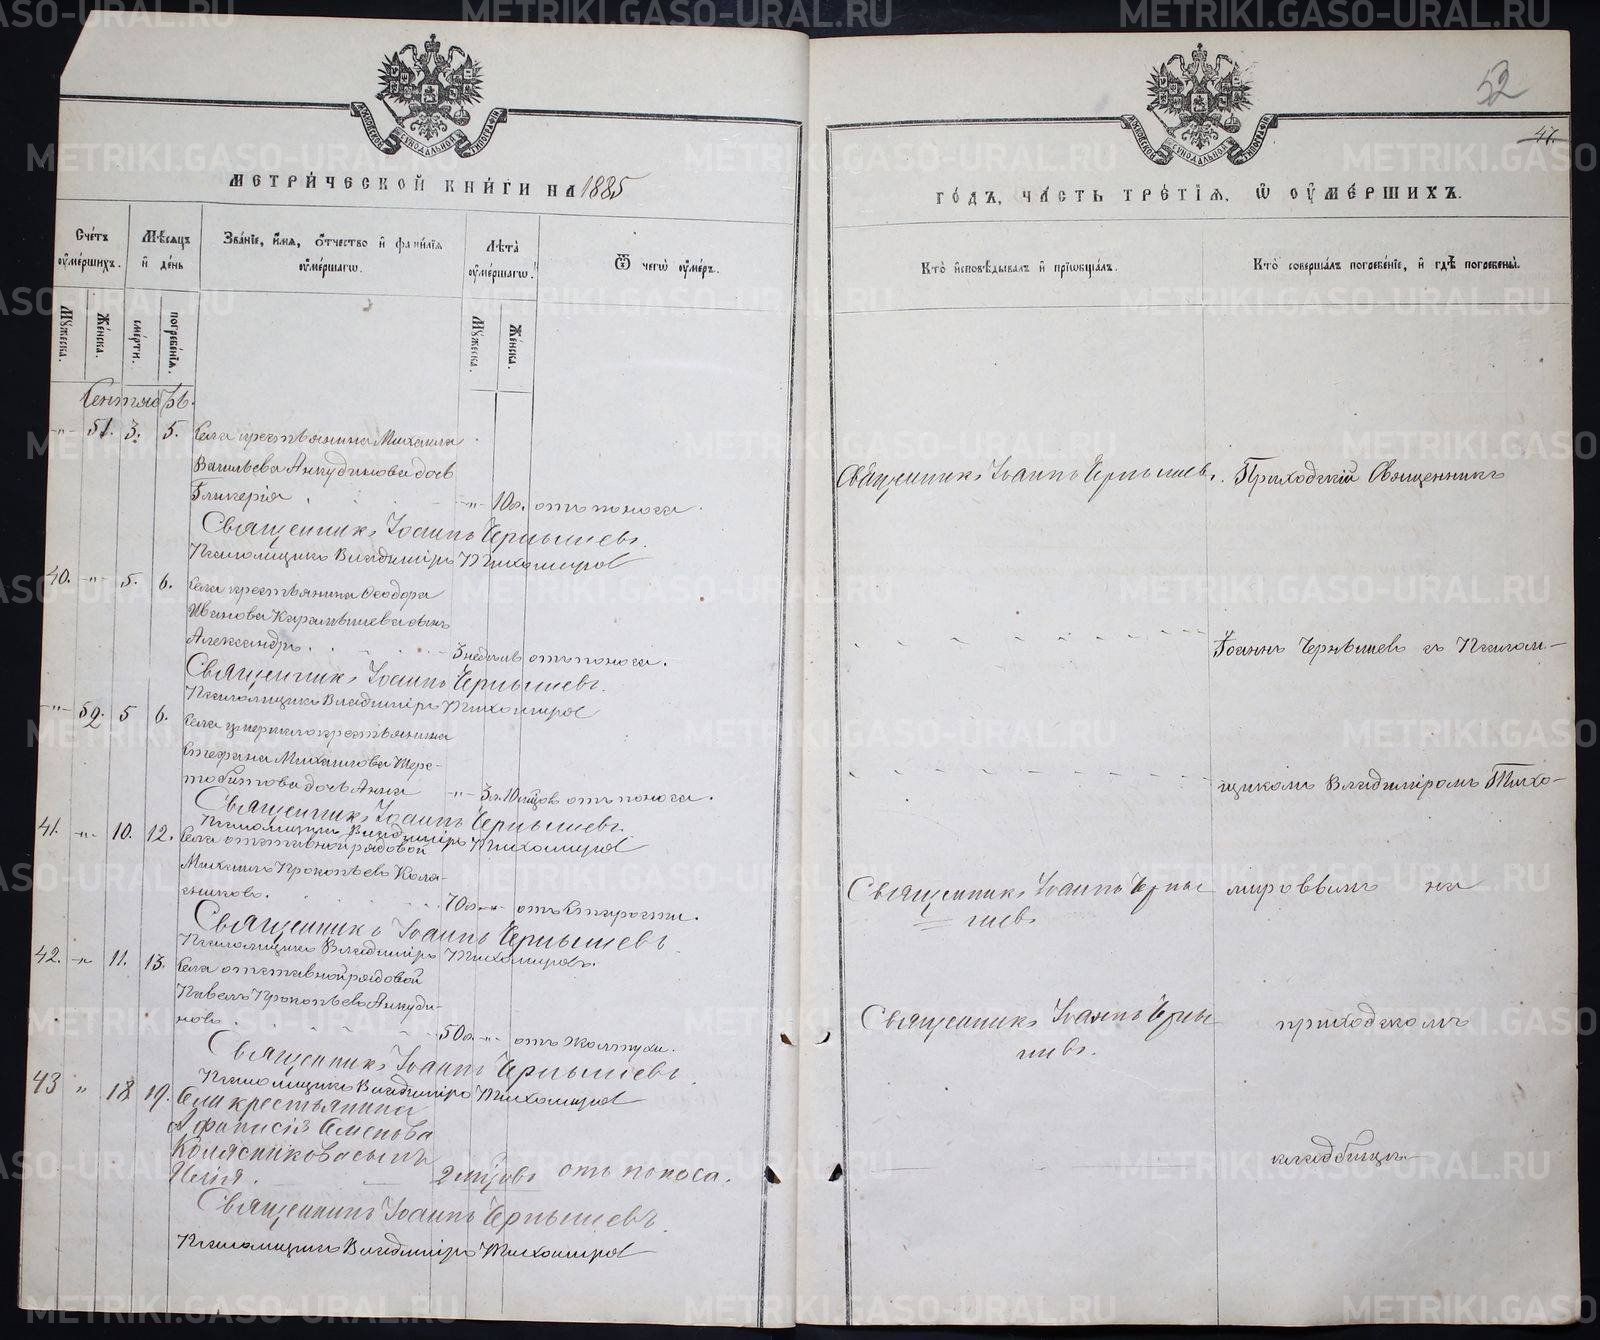 МЕТРИ́ЧЕСКОЙ КНИ́ГИ НА 1885
Сче́тъ ᲂу҆ме́ршихъ.
Мѣ́сяцъ и҆ де́нь
Зва́нїе, и҆́мя, ѻ҆́тчество и҆ фами́лїя ᲂу҆ме́ршагѡ.
Лѣ́та ᲂу҆ме́ршагѡ.
Ѿ чегѡ̀ ᲂу҆ме́ръ.
Мꙋ́жеска.
Же́нска.
сме́рти.
погребе́нїя.
Мꙋ́жеска.
Же́нска.
Сентябрь.
-"- 51. 3. 5. Села крестьянина Михаила
Васильева Анкудинова дочь
Гликерія -"- 10 д. отъ поноса.
Священникъ Іоаннъ Чернышевъ.
Псаломщикъ Владиміръ Тихомировъ
40. -"- 5. 6. Села крестьянина Ѳеодора
Иванова Карамышева сынъ
Александръ. 3 недѣль отъ поноса.
Священникъ Іоаннъ Чернышевъ.
Псаломщикъ Владиміръ Тихомировъ
-"- 52. 5 6. Села умершаго крестьянина
Стефана Михаилова
дочь Анна -"- 3 г. 10 мѣцов отъ поноса.
Священникъ Іоаннъ Чернышевъ.
Псаломщикъ Владиміръ Тихомировъ
41. -"- 10. 12. Села отставной рядовой
Михаилъ Прокопьевъ Коля-
сниковъ. 70 л. -"- отъ старости.
Священникъ Іоаннъ Чернышевъ
Псаломщикъ Владиміръ Тихомировъ.
42. -"- 11. 13. Села отставной рядовой
Павелъ Прокопьевъ Анкуди-
новъ 50 л. -"- отъ желтухи.
Священникъ Іоаннъ Чернышевъ.
Псаломщикъ Владиміръ Тихомировъ
43 " 18 19. Села крестьянина
Афанасія Семенова
Колясникова сынъ
Илія. 2 мѣцовъ отъ поноса.
Священникъ Іоаннъ Чернышевъ.
Псаломщикъ Владиміръ Тихомировъ
52
47.
ГО́ДЪ, ЧА́СТЬ ТРЕ́ТЇЯ, Ѽ ОУ҆МЕ́РШИХЪ.
Кто̀ и҆сповѣ́дывалъ и҆ прїѡбща́лъ.
Кто̀ соверша́лъ погребе́нїе, и҆ гдѣ̀ погребены̀.
Священникъ Іоаннъ Чернышевъ.
Приходскій Священникъ
Іоаннъ Чернышевъ съ Псалом-
щикомъ Владиміромъ Тихо-
Священникъ Іоаннъ Черны
шевъ
мировымъ на
Священникъ Іоаннъ Черны
шевъ.
приходскомъ
кладбищѣ.
METRIKI.GASO-URAL.RU